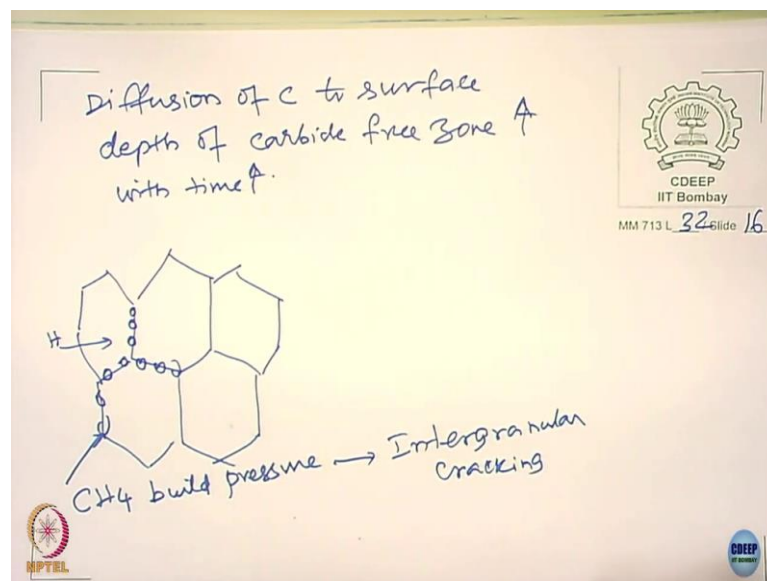 Diffusion of C to surface
depth of carbide free zone ↑
with time ↑.
CDEEP
IIT Bombay
MM 713 L 32 Slide 16
H
CH4 build pressure → Intergranular
cracking
NPTEL
CDEEP
IIT BOMBAY